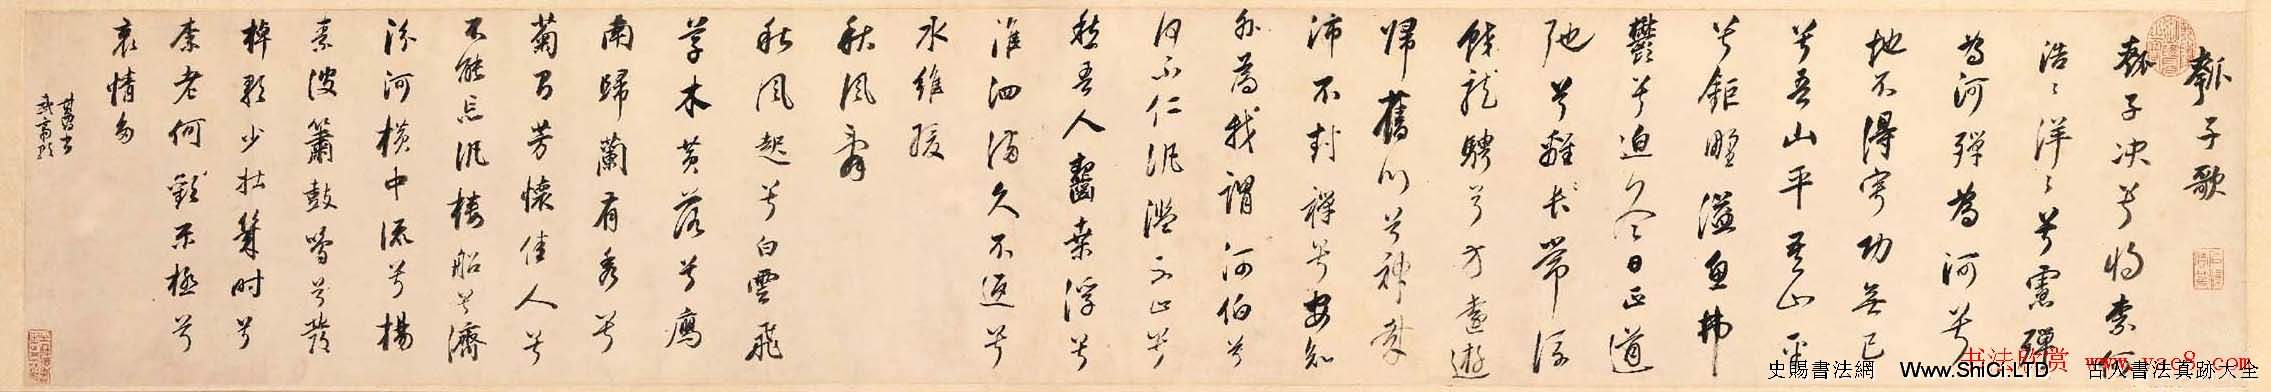 瓠子歌
瓠子决兮将柰何
浩浩洋洋兮虑殫
为河殫为河兮
地不得寧功无已
兮吾山平吾山平
兮鉅野溢魚弗
鬱兮迫冬日正道
弛兮離長常流
蛟龍騁兮方遠遊
歸舊川兮神哉
沛不封禅兮安知
外为我謂河伯兮
何不仁汎濫不止兮
愁吾人齧桑浮兮
淮泗满久不返兮
水維緩
秋風辞
秋風起兮白雲飛
草木黄落兮鴈
南歸蘭有秀兮
菊有芳懷佳人兮
不能忘汎楼船兮濟
汾河横中流兮揚
素波簫鼓鸣兮發
棹歌少壮幾时兮
柰老何歡乐極兮
哀情多
其昌书
书法欣赏 www.yac8.com
史賜書法網 Www.ShiCi.LTD 古人書法真跡大全